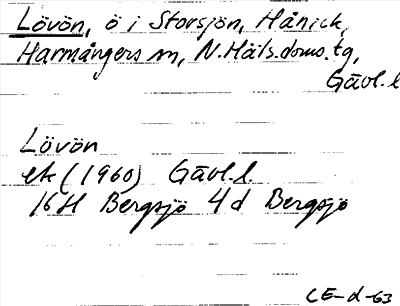 Lövön, ö i Storsjön, Hånick,
Harmångers sn, N. Häls. doms. tg,
Gävl. l
Lövön
ek (1960) Gävl. l.
16H Bergsjö 4d Bergsjö
CE-d-63